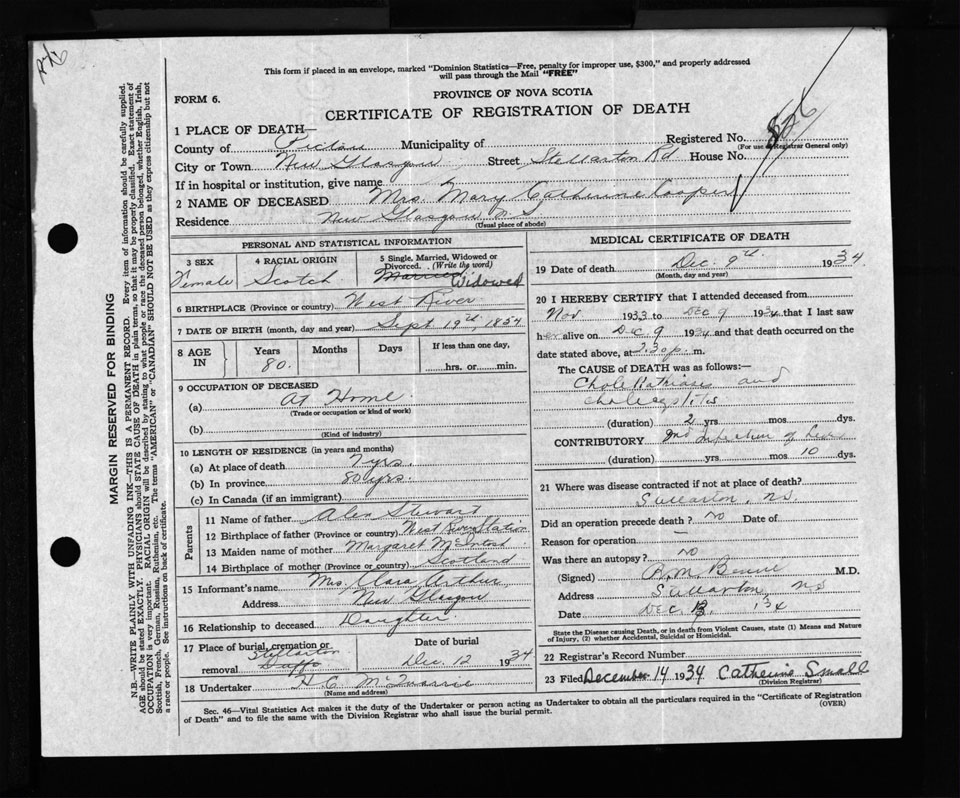 This form if placed in an envelope, marked "Dominion Statistics—Free, penalty for improper use, $300," and properly addressed
will pass through the Mail "FREE"
FORM 6.
PROVINCE OF NOVA SCOTIA
CERTIFICATE OF REGISTRATION OF DEATH
1 PLACE OF DEATH—
County of Pictou Municipality of Registered No.
(For use of Registrar General only)
City or Town New Glasgow Street Stellarton Rd House No.
If in hospital or institution, give name
2 NAME OF DECEASED Mrs. Mary Catherine Cooper
Residence New Glasgow N S
(Usual place of abode)
PERSONAL AND STATISTICAL INFORMATION
3 SEX Female
4 RACIAL ORIGIN Scotch
5 Single, Married, Widowed or Divorced. (Write the word)
Married Widowed
6 BIRTHPLACE (Province or country) West River
7 DATE OF BIRTH (month, day and year) Sept 19th, 1854
8 AGE IN Years 80. Months Days If less than one day, hrs. or min.
9 OCCUPATION OF DECEASED
(a) At Home
(Trade or occupation or kind of work)
(b)
(Kind of industry)
10 LENGTH OF RESIDENCE (in years and months)
(a) At place of death 7 yrs.
(b) In province 80 yrs.
(c) In Canada (if an immigrant)
Parents
11 Name of father Alex Stewart
12 Birthplace of father (Province or country) West River Station
13 Maiden name of mother Margaret McIntosh
14 Birthplace of mother (Province or country) Scotland
15 Informant's name Mrs. Clara Arthur
Address New Glasgow
16 Relationship to deceased Daughter
17 Place of burial, cremation or removal Stellarton Duffs
Date of burial Dec. 12 1934
18 Undertaker H C McQuarrie
(Name and address)
MEDICAL CERTIFICATE OF DEATH
19 Date of death Dec. 9th. 1934
(Month, day and year)
20 I HEREBY CERTIFY that I attended deceased from
Nov 1933 to Dec 9 1934 that I last saw
her alive on Dec. 9 1934 and that death occurred on
date stated above, at 2.30 p. m.
The CAUSE of DEATH was as follows:—
and
(duration) 2 yrs mos dys.
CONTRIBUTORY of
(duration) yrs mos 10 dys.
21 Where was disease contracted if not at place of death?
Stellarton, N.S.
Did an operation precede death? No Date of
Reason for operation —
Was there an autopsy? No
(Signed) M.D.
Address Stellarton, NS
Date Dec. '34
State the Disease causing Death, or in death from Violent Causes, state (1) Means and Nature
of Injury, (2) whether Accidental, Suicidal or Homicidal.
22 Registrar's Record Number
23 Filed December 14 1934 Catherine Small
(Division Registrar)
Sec. 46—Vital Statistics Act makes it the duty of the Undertaker or person acting as Undertaker to obtain all the particulars required in the "Certificate of Registration
of Death" and to file the same with the Division Registrar who shall issue the burial permit.
(OVER)
MARGIN RESERVED FOR BINDING
N.B.—WRITE PLAINLY WITH UNFADING INK—THIS IS A PERMANENT RECORD. Every item of information should be carefully supplied.
AGE should be stated EXACTLY. PHYSICIANS should STATE CAUSE OF DEATH in plain terms, so that it may be properly classified. Exact statement of
OCCUPATION is very important. RACIAL ORIGIN will be described by stating to what people or race the deceased person belonged, whether English, Irish,
Scottish, French, German, Russian, Ruthenian, etc. The terms "AMERICAN" or "CANADIAN" SHOULD NOT BE USED as they express citizenship but not
a race or people. See instructions on back of certificate.